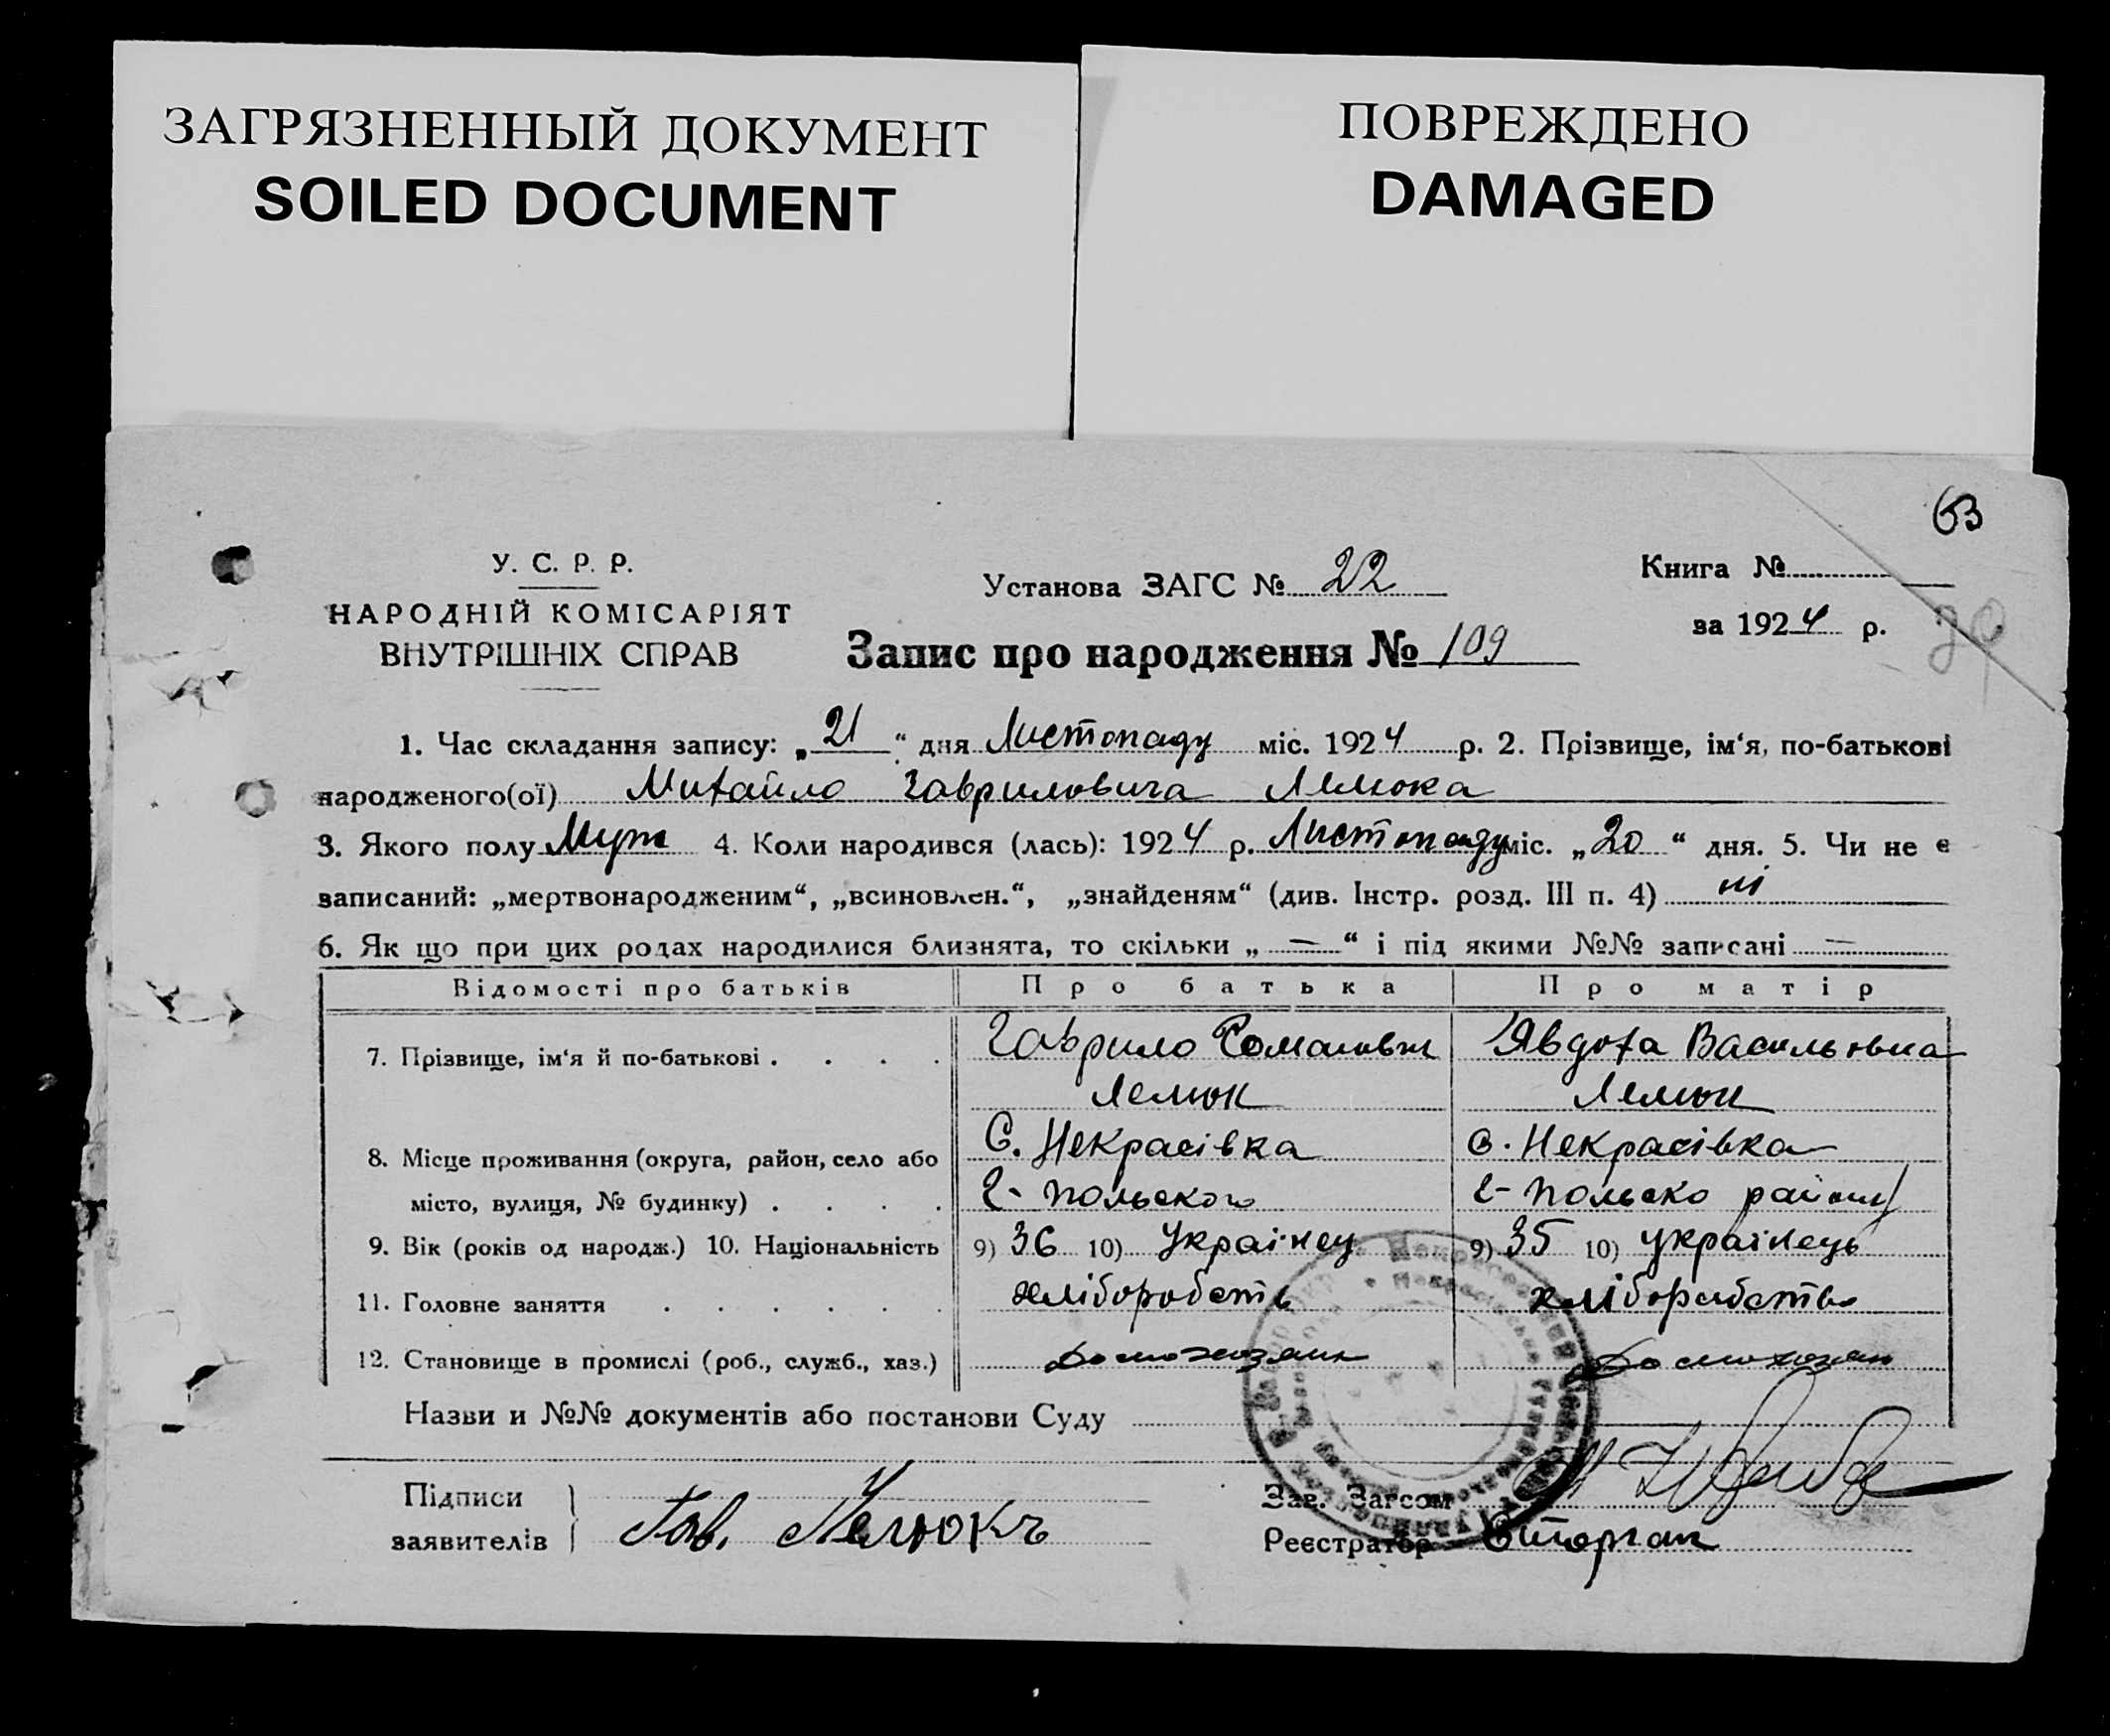 ЗАГРЯЗНЕННЫЙ ДОКУМЕНТ
SOILED DOCUMENT
ПОВРЕЖДЕНО
DAMAGED
63
У. С. Р. Р.
НАРОДНІЙ КОМІСАРІЯТ
ВНУТРІШНІХ СПРАВ
Установа ЗАГС № 22
Запис про народження № 109
Книга №
за 1924 р.
1. Час складання запису: „21“ дня Листопаду міс. 1924 р. 2. Прізвище, ім‘я, по-батькові
народженого(ої) Михайло Гавриловича Лемюка
3. Якого полу Муж 4. Коли народився (лась): 1924 р. Листопаду міс. „20“ дня. 5. Чи не є
записаний: „мертвонародженим“, „всиновлен.“, „знайденям“ (див. Інстр. розд. III п. 4) ні
6. Як що при цих родах народилися близнята, то скільки „ — “ і під якими №№ записані —
Відомості про батьків Про батька Про матір
7. Прізвище, ім‘я й по-батькові . . . . Гаврило Романович Явдоха Васильовна
Лемюк Лемюк
8. Місце проживання (округа, район, село або С. Некрасівка с. Некрасівка
місто, вулиця, № будинку) . . . . польского польско району
9. Вік (років од народж.) 10. Національність 9) 36 10) Украінец 9) 35 10) украінець
11. Головне заняття . . . . . . хліборобств хліборобство
12. Становище в промислі (роб., служб., хаз.) Домохозяин Домохозяин
Назви и №№ документів або постанови Суду
Підписи
заявителів Гав. Лемюкъ
Зав. Загсом
Реєстратор